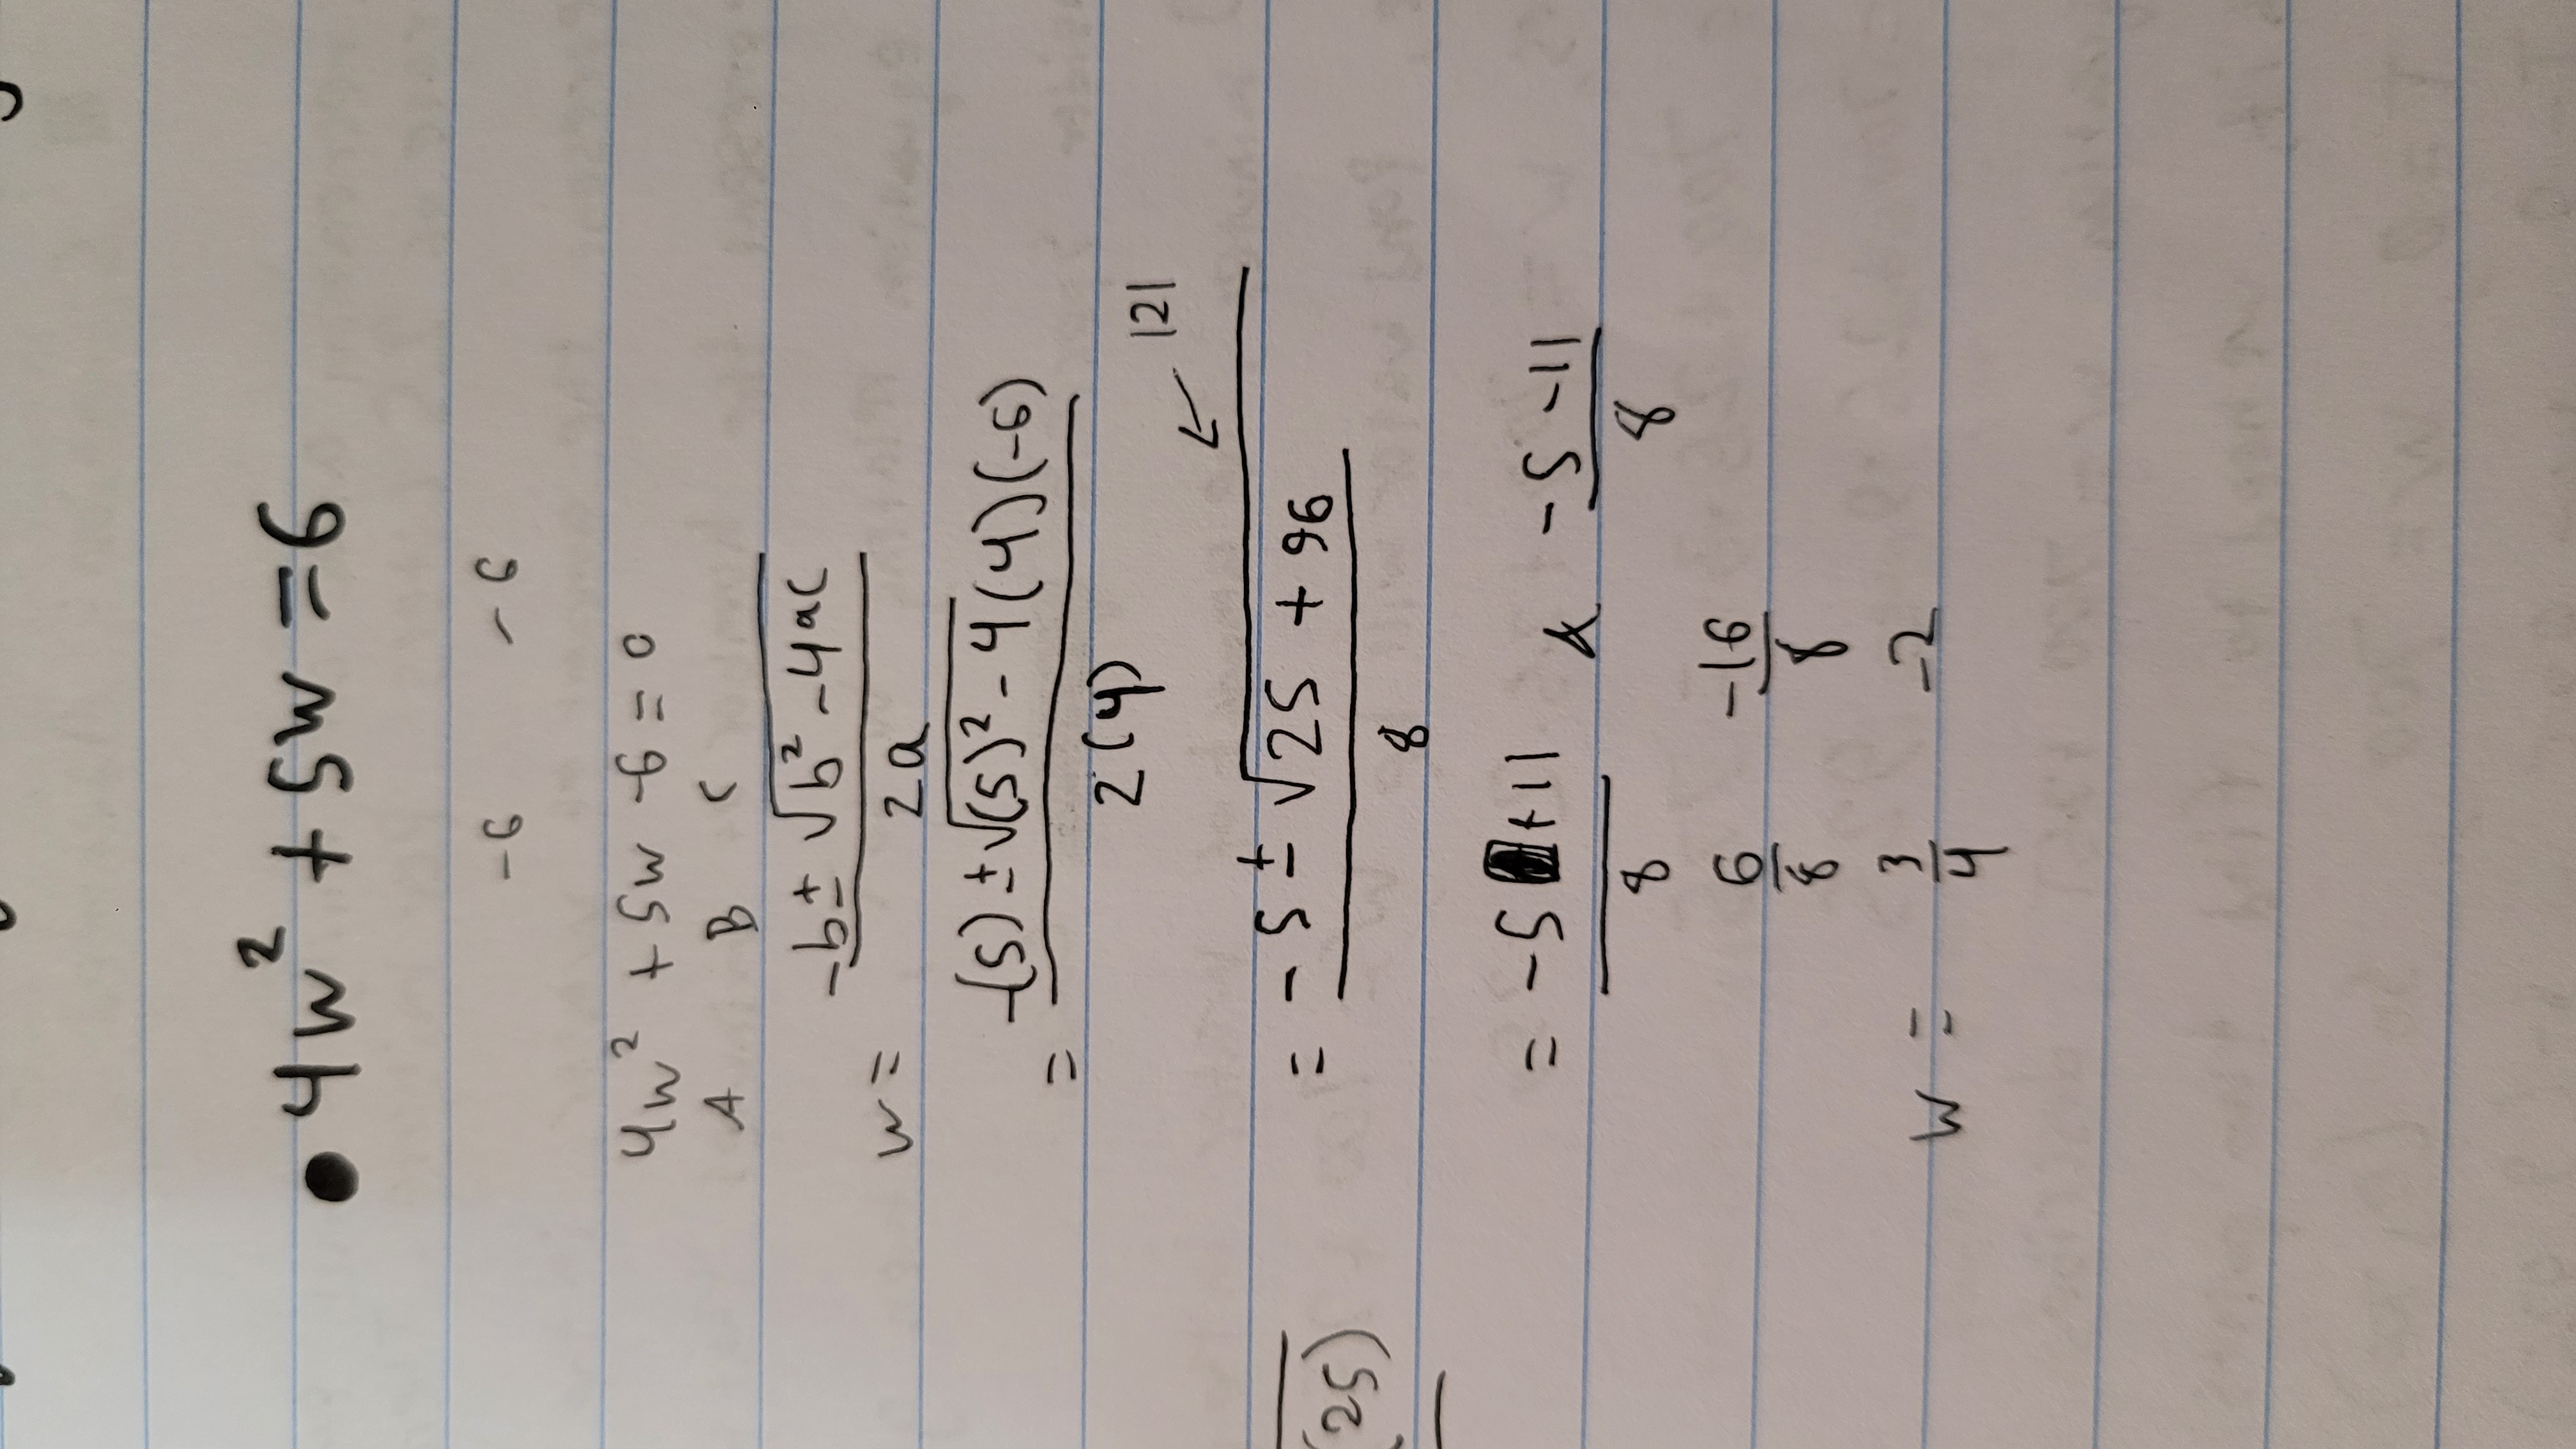 • 4w² + 5w = 6
-6 -6
4w² + 5w -6 = 0
A B C
w = (-b ± √(b² - 4ac)) / 2a
= (-(5) ± √((5)² - 4(4)(-6))) / 2(4)
121
(25)
= (-5 ± √(25 + 96)) / 8
= (-5 +11) / 8 & (-5 -11) / 8
6/8 -16/8
w = 3/4 -2